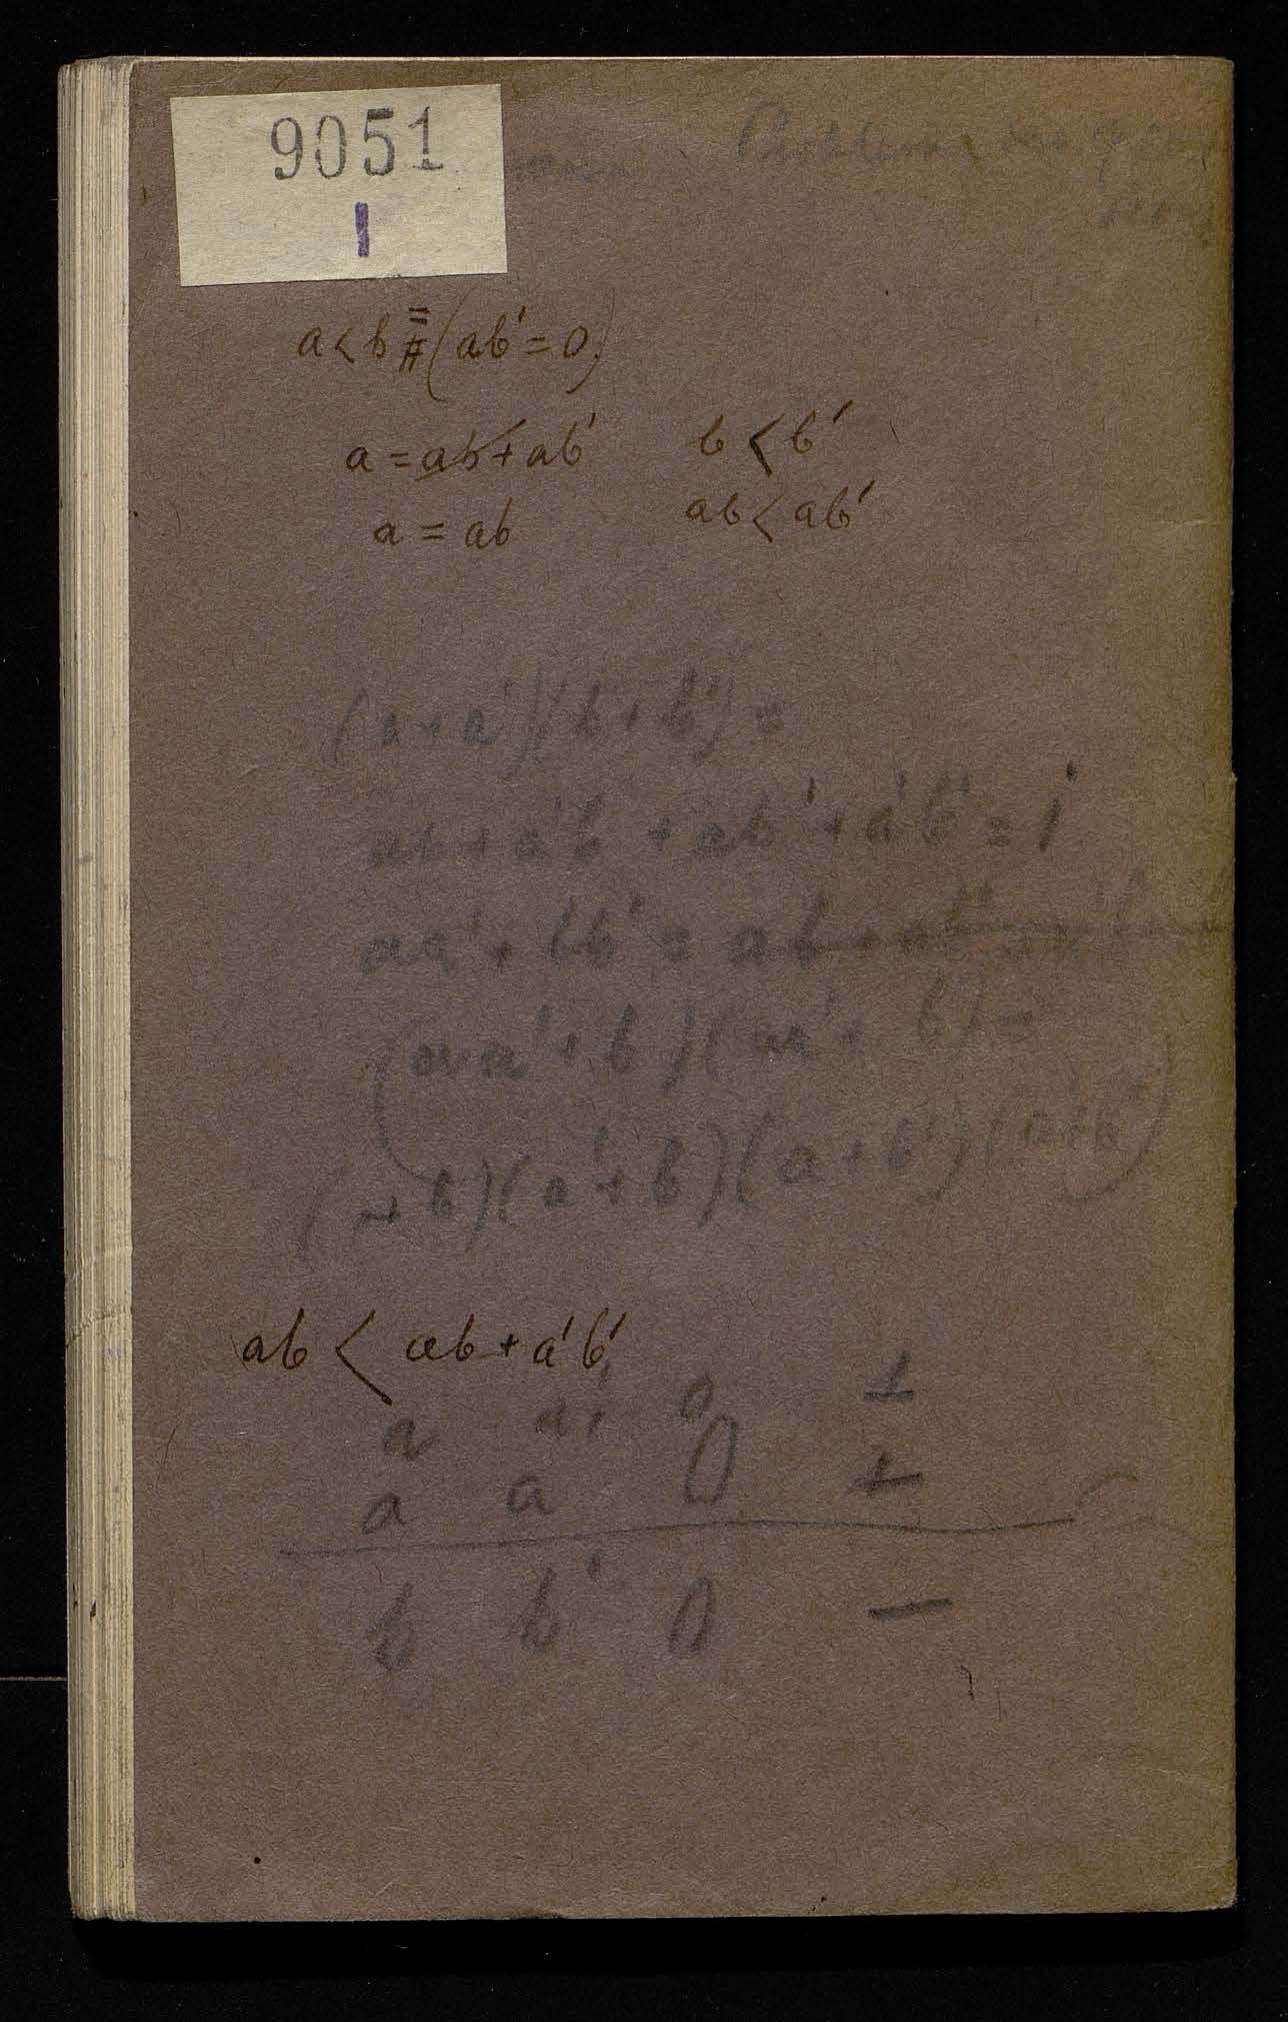 9051
I
a < b = (ab' = 0)
a = ab + ab' b < b'
a = ab ab < ab'
(a+a')(b+b') =
ab + a'b + ab' + a'b' = 1
aa' + bb' = ab + ab'
(aa' + b)(aa' + b') =
+b)(a'+b)(a+b')(
ab < ab + a'b'
a a' 0 +
a a 0 +
b b' 0 —